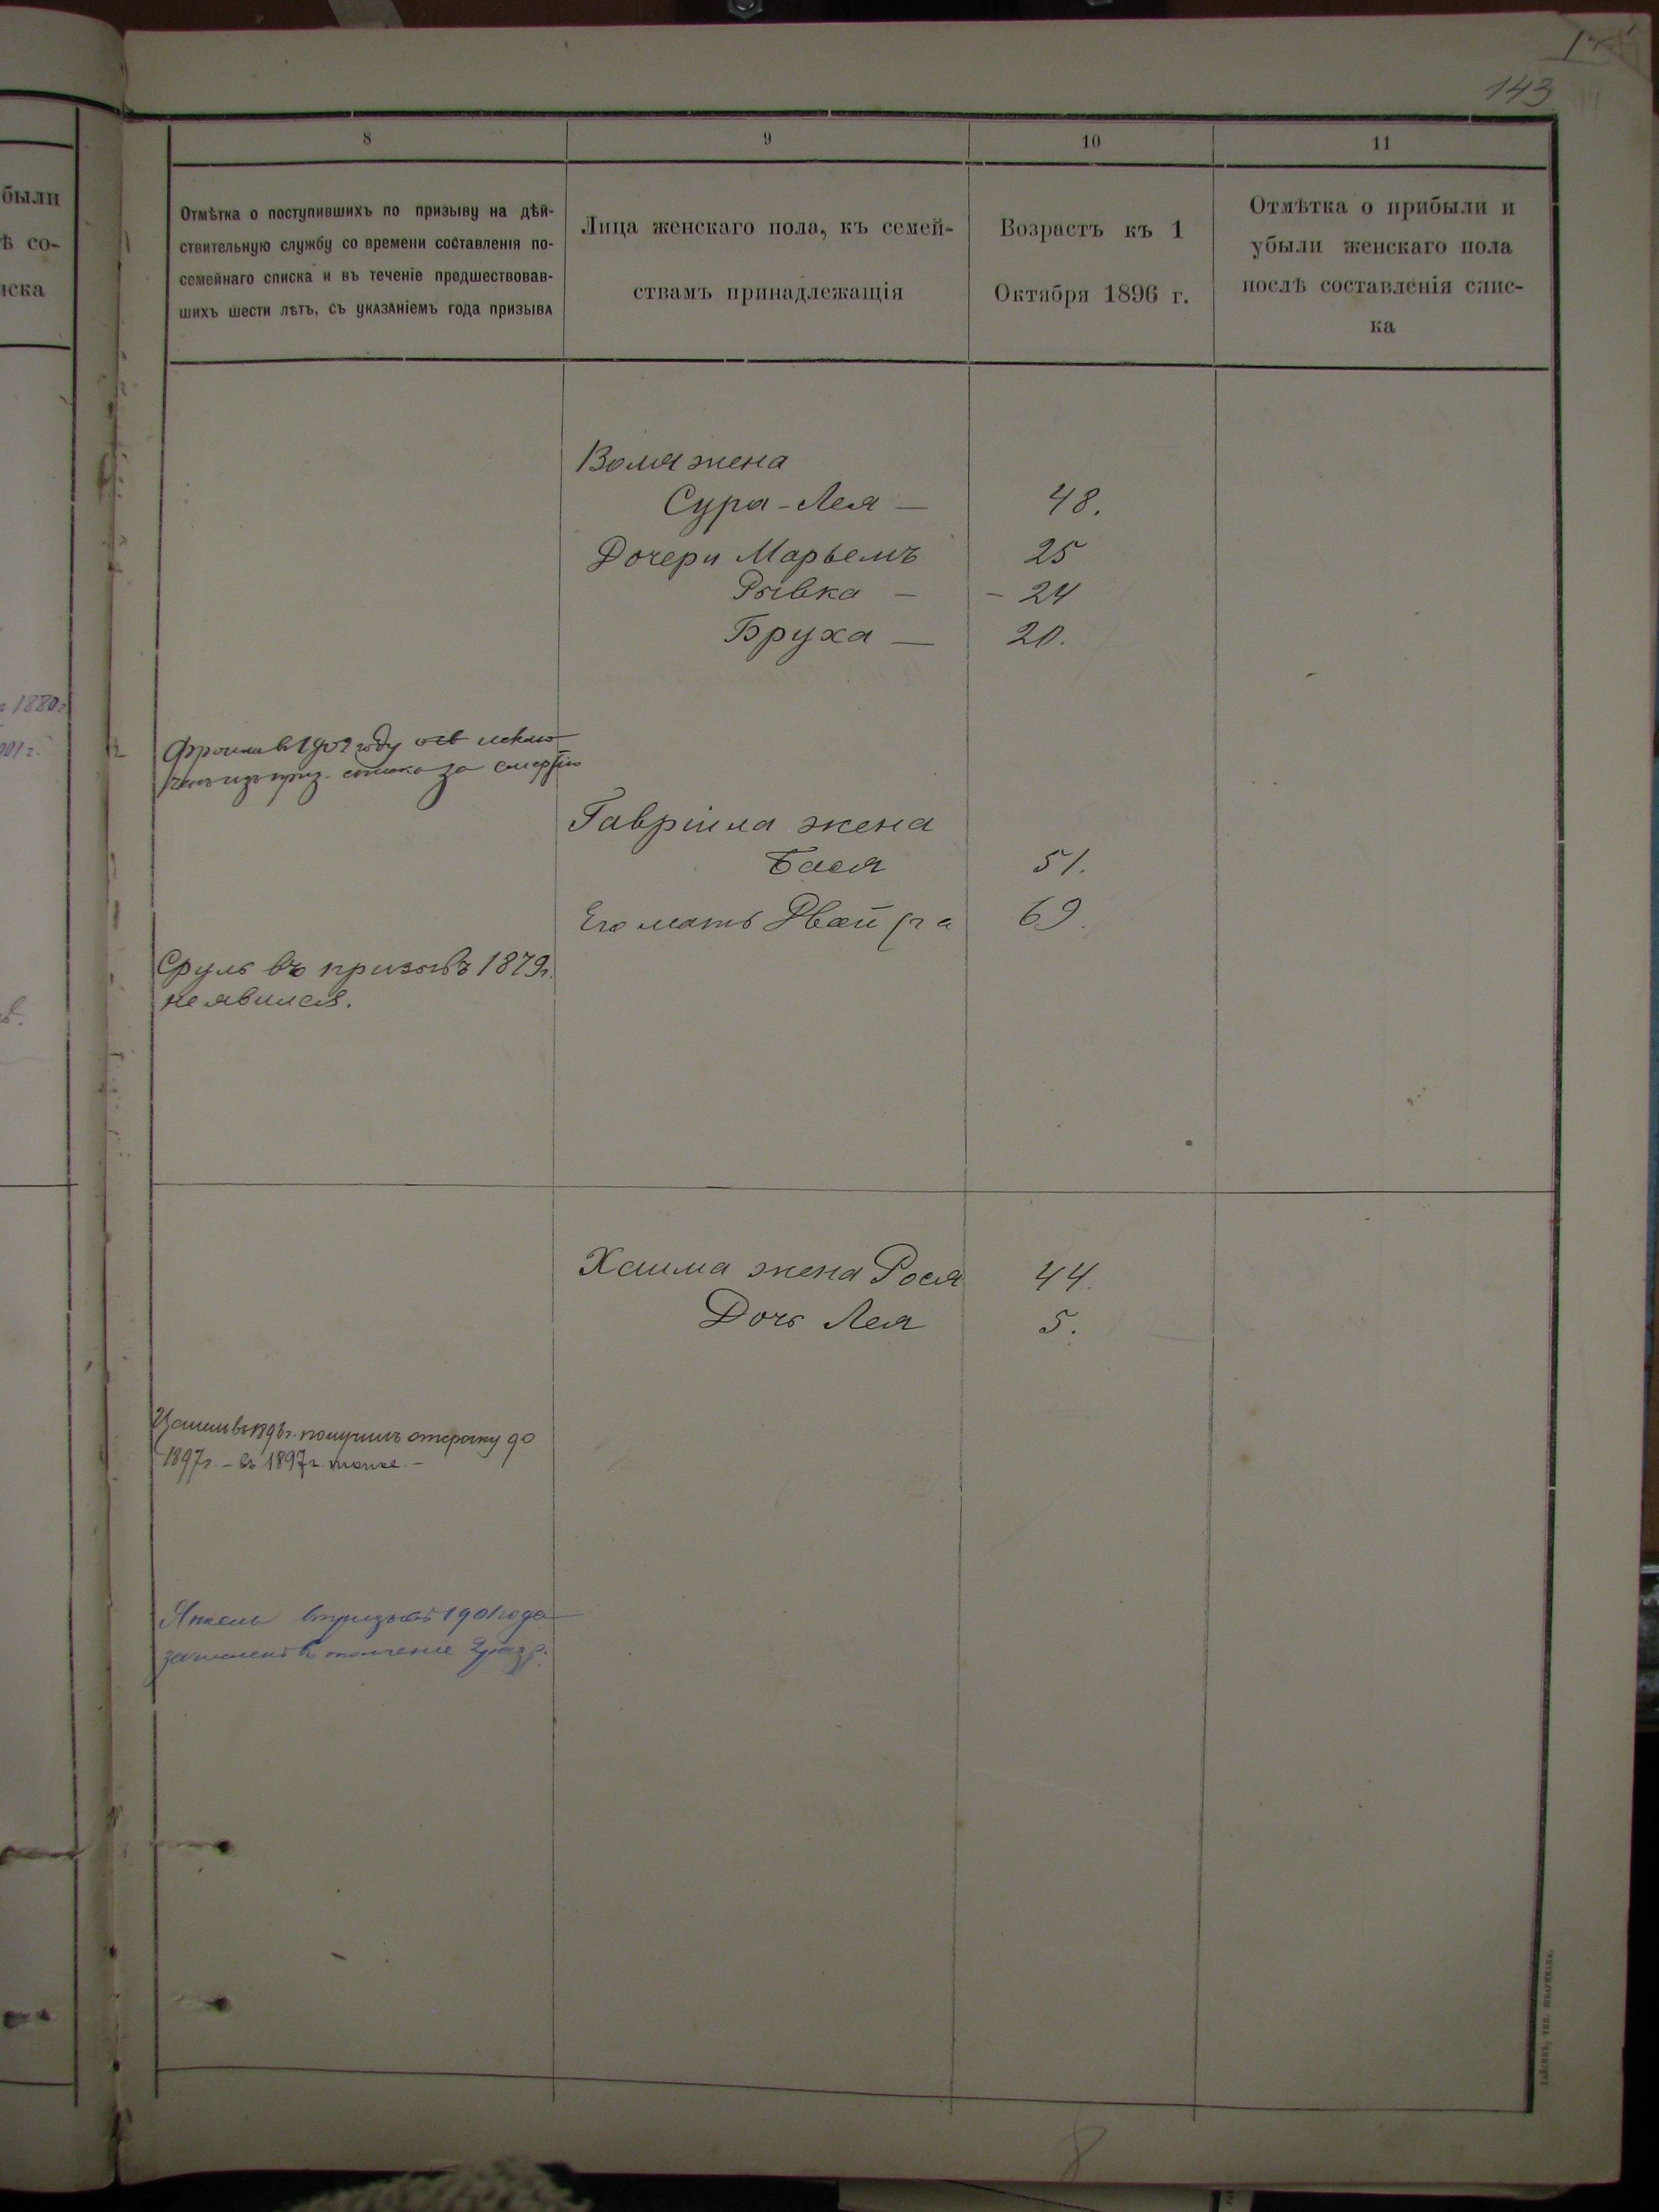 143
были
ѣ со-
иска
1880г.
8
9
10
11
Отмѣтка о поступившихъ по призыву на дѣй-
ствительную службу со времени составленія по-
семейнаго списка и въ теченіе предшествовав-
шихъ шести лѣтъ, съ указаніемъ года призыва
Лица женскаго пола, къ семей-
ствамъ принадлежащія
Возрастъ къ 1
Октября 1896 г.
Отмѣтка о прибыли и
убыли женскаго пола
послѣ составленія спис-
ка
жена
Сура-Лея — 48.
Дочери Марьемъ 25
Рывка — - 24
Бруха — 20.
Фроимъ въ 1902 году исклю-
ченъ изъ приз. списка за смертію
Гавріила жена
Бася 51.
Его мать Двойра 69.
Сруль въ призывъ 1879г.
не явился.
Хаима жена Рося 44.
Дочь Лея 5.
въ 1896г. получилъ отсрочку до
1897г. - въ 1897г. тоже. -
Янкель въ призывъ 1901 года
зачисленъ въ ополченіе 2 разр.
8